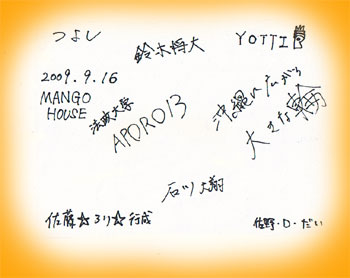 つよし
鈴木将大
YOTTI
2009.9.16
MANGO
HOUSE
法政大学
APORO13
沖縄に広がる
大きな輪
石川 大翔
佐藤☆ろり☆行成
佐野・D・だい